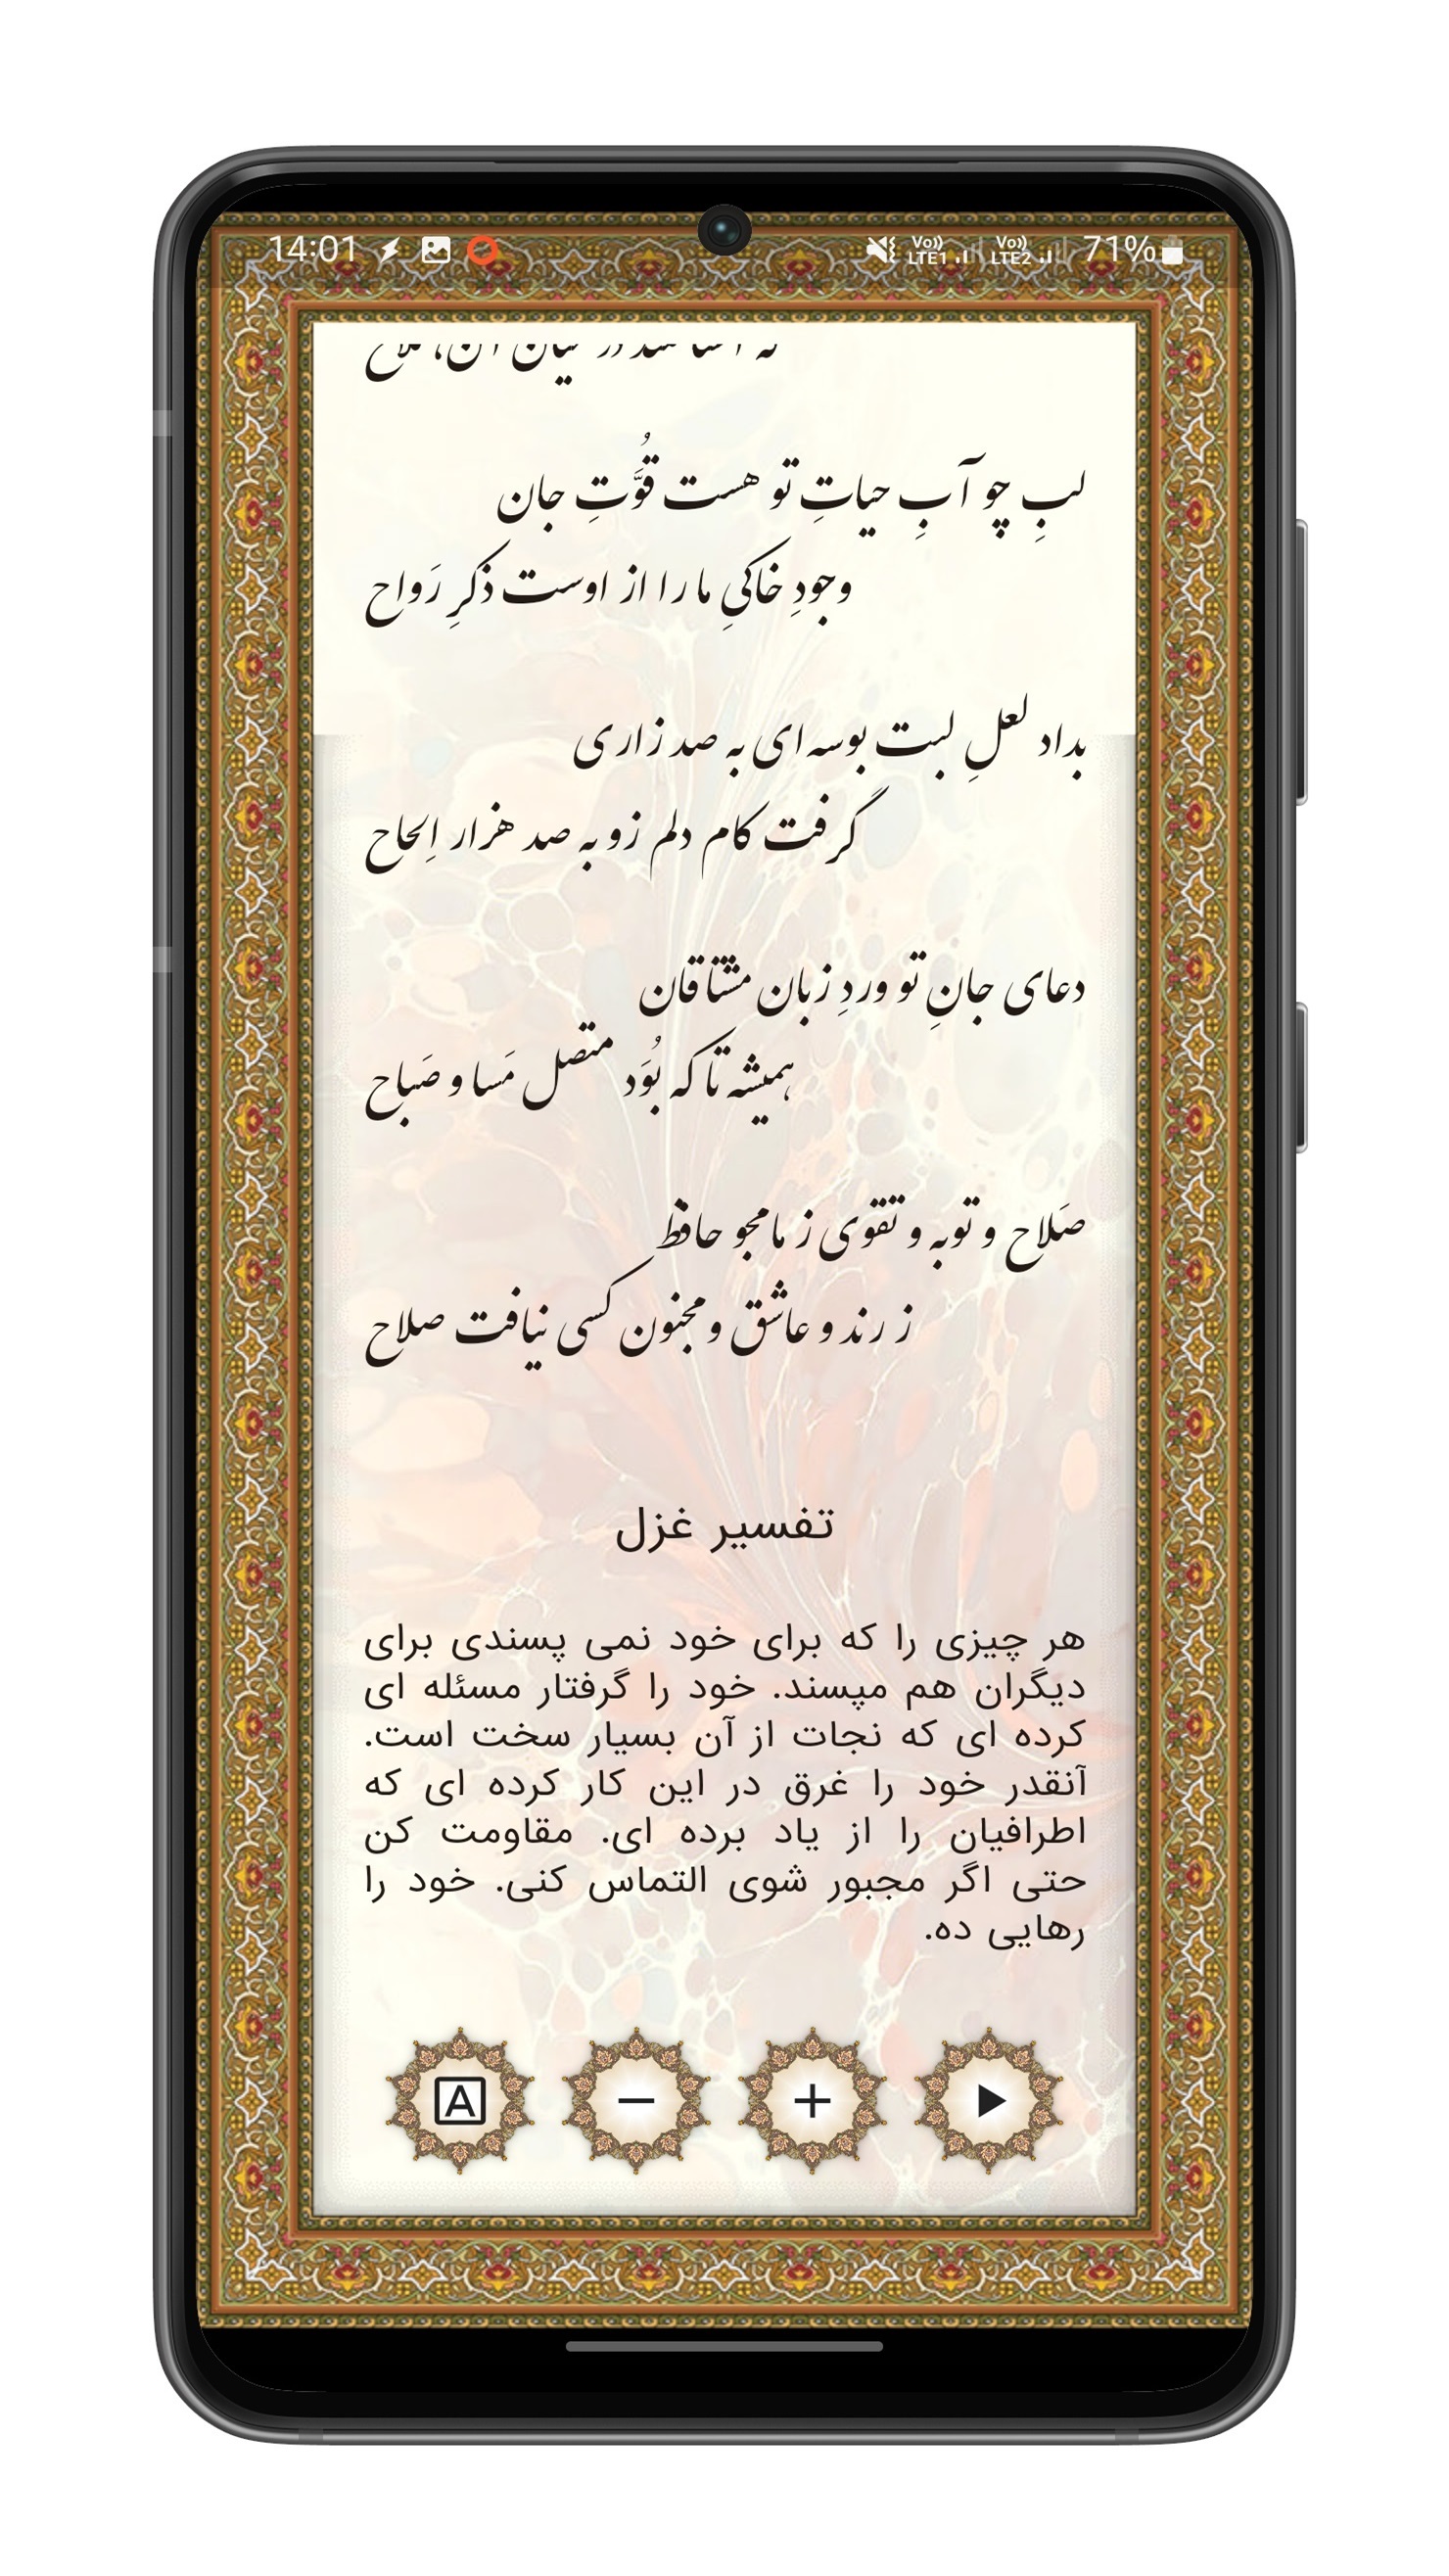 14:01
Vo)) LTE1 Vo)) LTE2 71%
لبِ چو آبِ حیاتِ تو هست قُوَّتِ جان
وجودِ خاکیِ ما را از اوست ذکرِ رَواح
بداد لعلِ لبت بوسه‌ای به صد زاری
گرفت کام دلم زو به صد هزار اِلحاح
دعای جانِ تو وردِ زبان مشتاقان
همیشه تا که بُوَد متصل مَسا و صَباح
صَلاح و توبه و تقوی ز ما مجو حافظ
ز رند و عاشق و مجنون کسی نیافت صلاح
تفسیر غزل
هر چیزی را که برای خود نمی پسندی برای
دیگران هم مپسند. خود را گرفتار مسئله ای
کرده ای که نجات از آن بسیار سخت است.
آنقدر خود را غرق در این کار کرده ای که
اطرافیان را از یاد برده ای. مقاومت کن
حتی اگر مجبور شوی التماس کنی. خود را
رهایی ده.
A